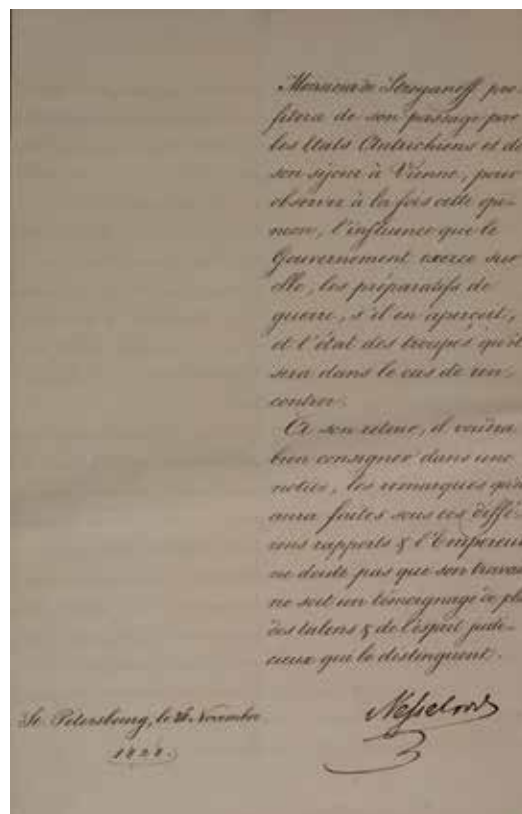 Monsieur de Stroganoff pro-
fitera de son passage par
les Etats Autrichiens et de
son séjour à Vienne, pour
observer à la fois cette opi-
nion, l'influence que le
Gouvernement exerce sur
elle, les préparatifs de
guerre, s'il en aperçoit,
et l'état des troupes qu'il
sera dans le cas de ren-
contrer.
A son retour, il voudra
bien consigner dans une
notice, les remarques qu'il
aura faites sous ces diffé-
rens rapports & l'Empereur
ne doute pas que son travail
ne soit un témoignage de plus
des talens & de l'esprit judi-
cieux qui le distinguent.
St. Petersbourg, le 26 Novembre
Nesselrode